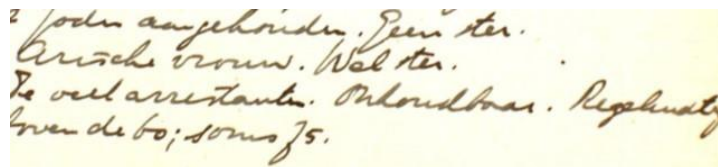 Joden aangehouden. Geen ster.
Arische vrouw. Wel ster.
Te veel arrestanten. Onhoudbaar. Regelmatig
boven de 60; soms 75.